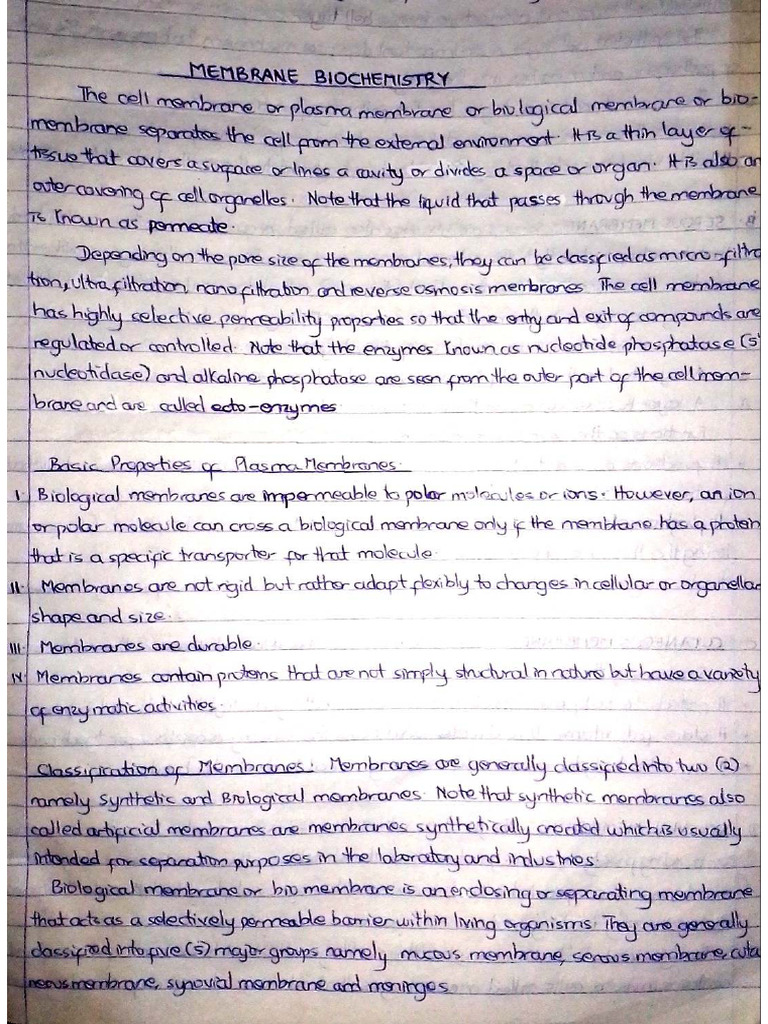 MEMBRANE BIOCHEMISTRY
The cell membrane or plasma membrane or biological membrane or bio-
membrane separates the cell from the external environment. It is a thin layer of-
tissue that covers a surface or lines a cavity or divides a space or organ. It is also an
outer covering of cell organelles. Note that the liquid that passes through the membrane
is known as permeate.
Depending on the pore size of the membranes, they can be classified as micro-filtra
tion, ultra filtration, nano filtration and reverse osmosis membranes. The cell membrane
has highly selective permeability properties so that the entry and exit of compounds are
regulated or controlled. Note that the enzymes known as nucleotide phosphatase (5'
nucleotidase) and alkaline phosphatase are seen from the outer part of the cell mem-
brane and are called ecto-enzymes
Basic Properties of Plasma Membranes.
I. Biological membranes are impermeable to polar molecules or ions. However, an ion
or polar molecule can cross a biological membrane only if the membrane has a protein
that is a specific transporter for that molecule.
II. Membranes are not rigid but rather adapt flexibly to changes in cellular or organellar
shape and size.
III. Membranes are durable.
IV. Membranes contain proteins that are not simply structural in nature but have a variety
of enzymatic activities.
Classification of Membranes: Membranes are generally classified into two (2)
namely Synthetic and Biological membranes. Note that synthetic membranes also
called artificial membranes are membranes synthetically created which is usually
intended for separation purposes in the laboratory and industries.
Biological membrane or bio membrane is an enclosing or separating membrane
that acts as a selectively permeable barrier within living organisms. They are generally
classified into five (5) major groups namely mucous membrane, serous membrane, cuta
neous membrane, synovial membrane and meninges.